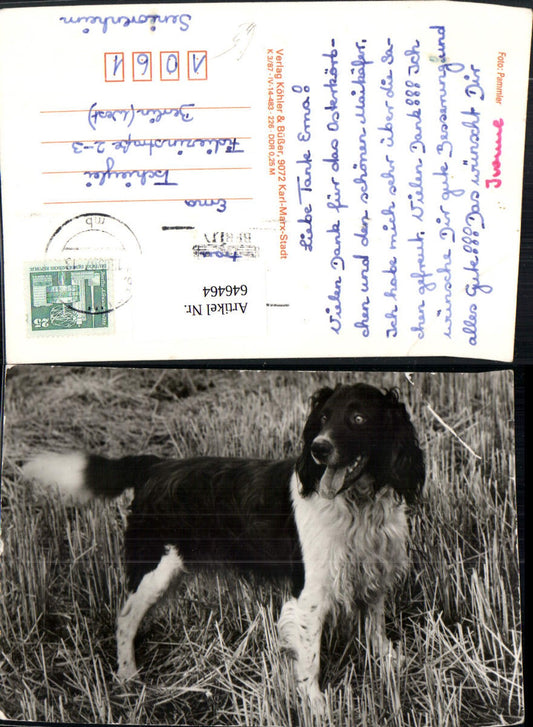 Foto: Pammler
Liebe Tante Erna!
Vielen Dank für das Osterkörb-
chen und den schönen Maikäfer.
Ich habe mich sehr über die Sa-
chen gefreut. Vielen Dank!!! Ich
wünsche Dir gute Besserung und
alles Gute!!! Das wünscht Dir
Ivonne
Verlag Köhler & Büßer, 9072 Karl-Marx-Stadt
K 3/87 · IV-14-483 · 226 · DDR 0,25 M
Artikel Nr.
646464
BERLIN
25
Erna
Berlin (West)
1061
Seniorenheim